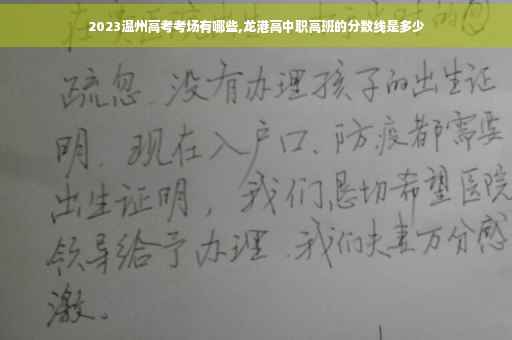 2023温州高考考场有哪些,龙港高中职高班的分数线是多少
疏忽、没有办理孩子的出生证
明、现在入户口、防疫都需要
出生证明，我们恳切希望医院
领导给予办理、我们夫妻万分感
激。